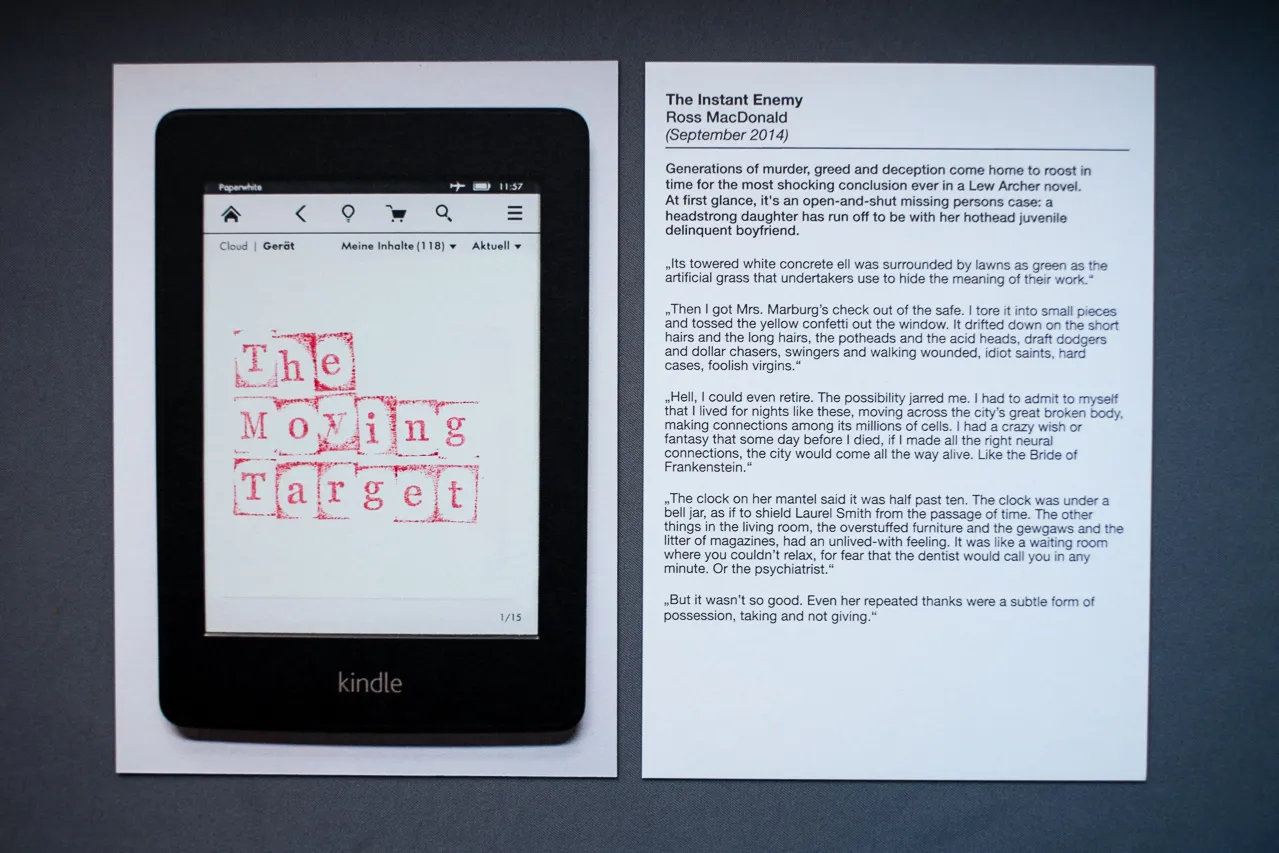 Paperwhite 11:57
Cloud | Gerät Meine Inhalte (118) Aktuell
The
Moving
Target
1/15
kindle
The Instant Enemy
Ross MacDonald
(September 2014)
Generations of murder, greed and deception come home to roost in
time for the most shocking conclusion ever in a Lew Archer novel.
At first glance, it's an open-and-shut missing persons case: a
headstrong daughter has run off to be with her hothead juvenile
delinquent boyfriend.
„Its towered white concrete ell was surrounded by lawns as green as the
artificial grass that undertakers use to hide the meaning of their work.“
„Then I got Mrs. Marburg’s check out of the safe. I tore it into small pieces
and tossed the yellow confetti out the window. It drifted down on the short
hairs and the long hairs, the potheads and the acid heads, draft dodgers
and dollar chasers, swingers and walking wounded, idiot saints, hard
cases, foolish virgins.“
„Hell, I could even retire. The possibility jarred me. I had to admit to myself
that I lived for nights like these, moving across the city’s great broken body,
making connections among its millions of cells. I had a crazy wish or
fantasy that some day before I died, if I made all the right neural
connections, the city would come all the way alive. Like the Bride of
Frankenstein.“
„The clock on her mantel said it was half past ten. The clock was under a
bell jar, as if to shield Laurel Smith from the passage of time. The other
things in the living room, the overstuffed furniture and the gewgaws and the
litter of magazines, had an unlived-with feeling. It was like a waiting room
where you couldn’t relax, for fear that the dentist would call you in any
minute. Or the psychiatrist.“
„But it wasn’t so good. Even her repeated thanks were a subtle form of
possession, taking and not giving.“